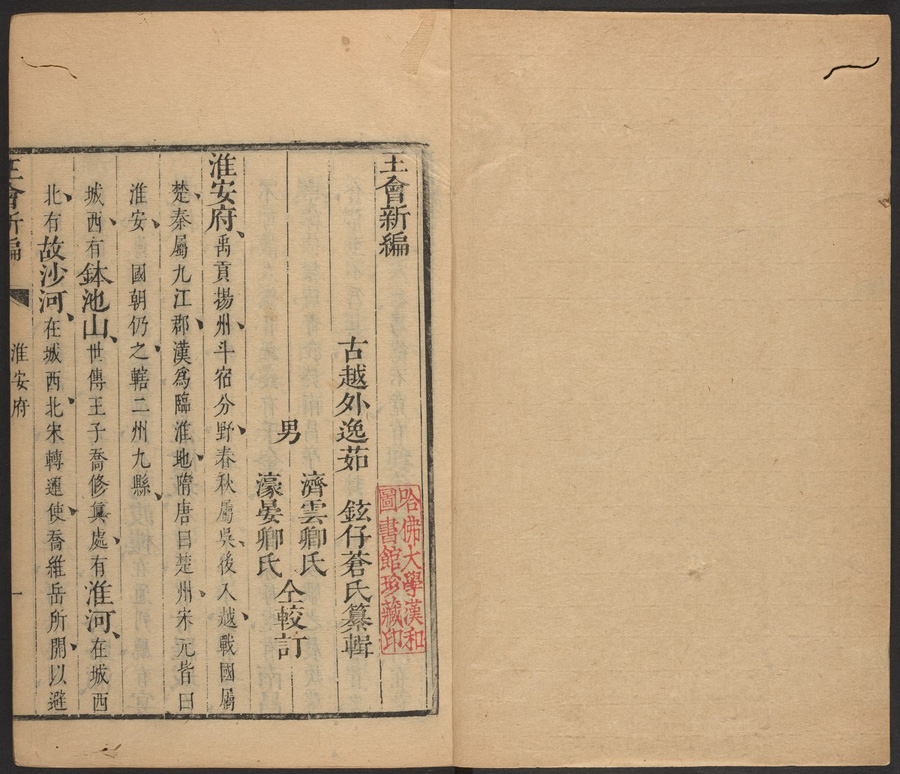 王會新編
古越外逸茹　鉉仔蒼氏纂輯
男　濟雲卿氏
濠晏卿氏
仝較訂
淮安府、禹貢揚州、斗宿分野、春秋屬吳、後入越、戰國屬
楚、秦屬九江郡、漢爲臨淮地、隋唐曰楚州、宋元皆曰
淮安、　國朝仍之、轄二州九縣、
城西有鉢池山、世傳王子喬修眞處、有淮河、在城西
北、有故沙河、在城西北、宋轉運使喬維岳所開、以避
王會新編
淮安府
一
哈佛大學漢和
圖書館珍藏印